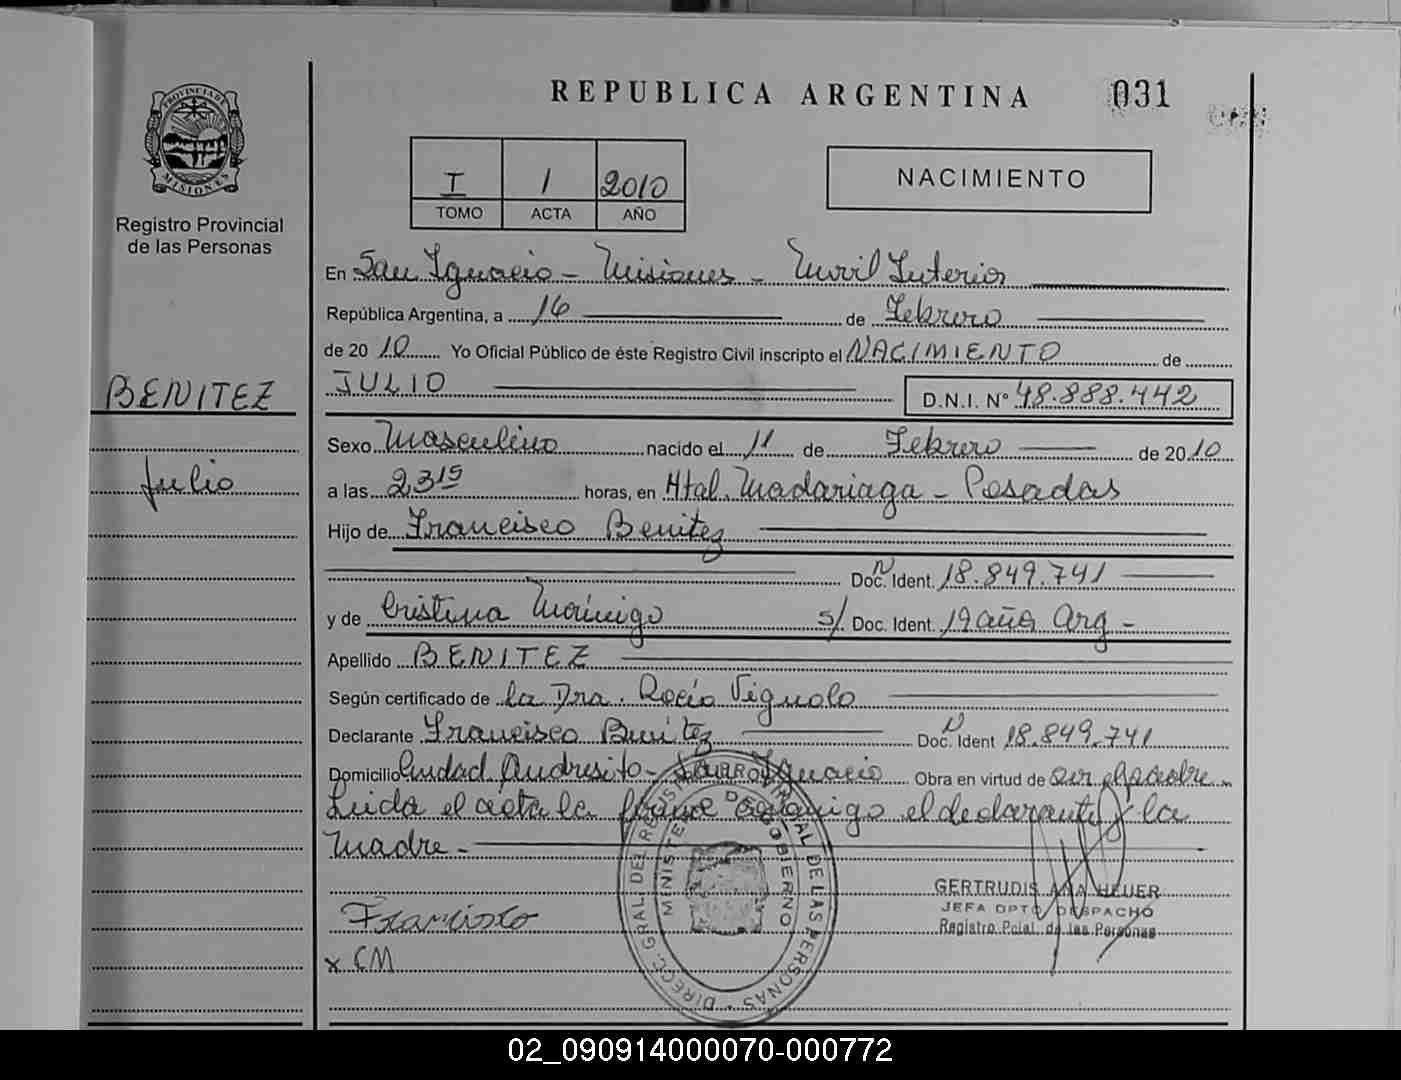 REPUBLICA ARGENTINA
031
PROVINCIA DE MISIONES
Registro Provincial
de las Personas
I 1 2010
TOMO ACTA AÑO
NACIMIENTO
En San Ignacio - Misiones - Movil Interior
República Argentina, a 16 de Febrero
de 2010 Yo Oficial Público de éste Registro Civil inscripto el NACIMIENTO de
JULIO D.N.I. N° 48.888.442
BENITEZ
Julio
Sexo Masculino nacido el 11 de Febrero de 2010
a las 23 15 horas, en Htal. Madariaga - Posadas
Hijo de Francisco Benitez
Doc. N Ident. 18.849.741
y de Cristina s/ Doc. Ident. 19 años Arg -
Apellido BENITEZ
Según certificado de la Dra. Rocío Vignolo
Declarante Francisco Benitez Doc. N Ident 18.849.741
Domicilio Ciudad Andresito - San Ignacio Obra en virtud de ser el padre
Leida el acta la firma conmigo el declarante y la
Madre -
GERTRUDIS ANA HEUER
JEFA DPTO DESPACHO
Registro Pcial. de las Personas
Francisco
x CM
DIREC. GRAL. DEL REGISTRO PROVINCIAL DE LAS PERSONAS
MINISTERIO DE GOBIERNO
02_090914000070-000772